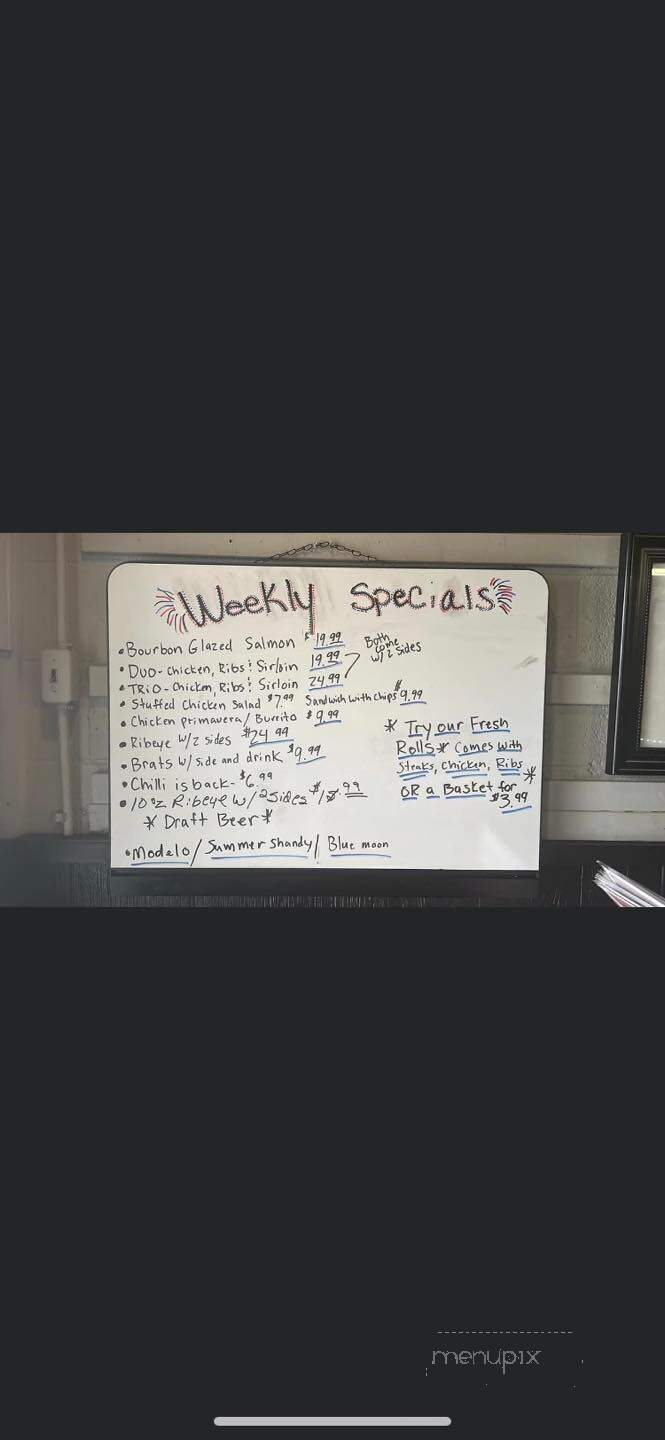 Weekly Specials
• Bourbon Glazed Salmon $19.99
• Duo-Chicken, Ribs & Sirloin 19.99
• TRiO-Chicken, Ribs & Sirloin 24.99
Both come w/2 sides
• Stuffed Chicken Salad $7.99 Sandwich with chips $9.99
• Chicken primavera/Burrito $9.99
• Ribeye w/2 sides $24.99
• Brats w/side and drink $9.99
• Chilli is back- $6.99
• 10oz Ribeye w/2sides $18.99
* Draft Beer *
• Modelo / Summer Shandy / Blue moon
* Try our Fresh
Rolls * Comes with
Steaks, Chicken, Ribs *
OR a Basket for
$3.99
menupix